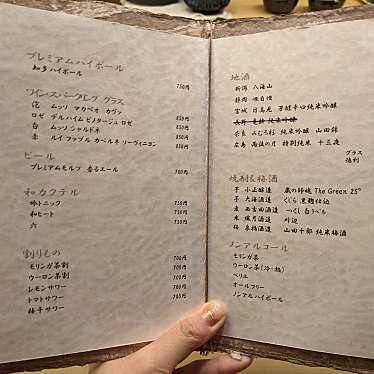 プレミアムハイボール
知多ハイボール 750円
ワインスパークレグ グラス
泡 ムッソ マカベオ カヴァ
ロゼ デルハイム ピノタージュ ロゼ 850円
白 ムッソ シャルドネ 850円
赤 ルイファッブル カベルネ ソーヴィニヨン 850円
ビール
プレミアムモルツ 香るエール 700円
和カクテル
吟トニック 750円
和ヒート 750円
六 750円
割りもの
モリンガ茶割 700円
ウーロン茶割 700円
レモンサワー 700円
トマトサワー 700円
梅干サワー 700円
地酒
新潟 八海山
静岡 磯自慢
宮城 日高見 芳醇辛口純米吟醸
奈良 みむろ杉 純米吟醸 山田錦
広島 雨後の月 特別純米 十三夜
グラス
徳利
焼酎&梅酒
芋 小正醸造 蔵の師魂 The Green 25°
芋 大海酒造 くじら 黒麹仕込
麦 西吉田酒造 つくし 白ラベル
米
梅 山田十郎 純米梅酒
ノンアルコール
モリンガ茶
ウーロン茶(冷・温)
ペリエ
オールフリー
ノンアルハイボール